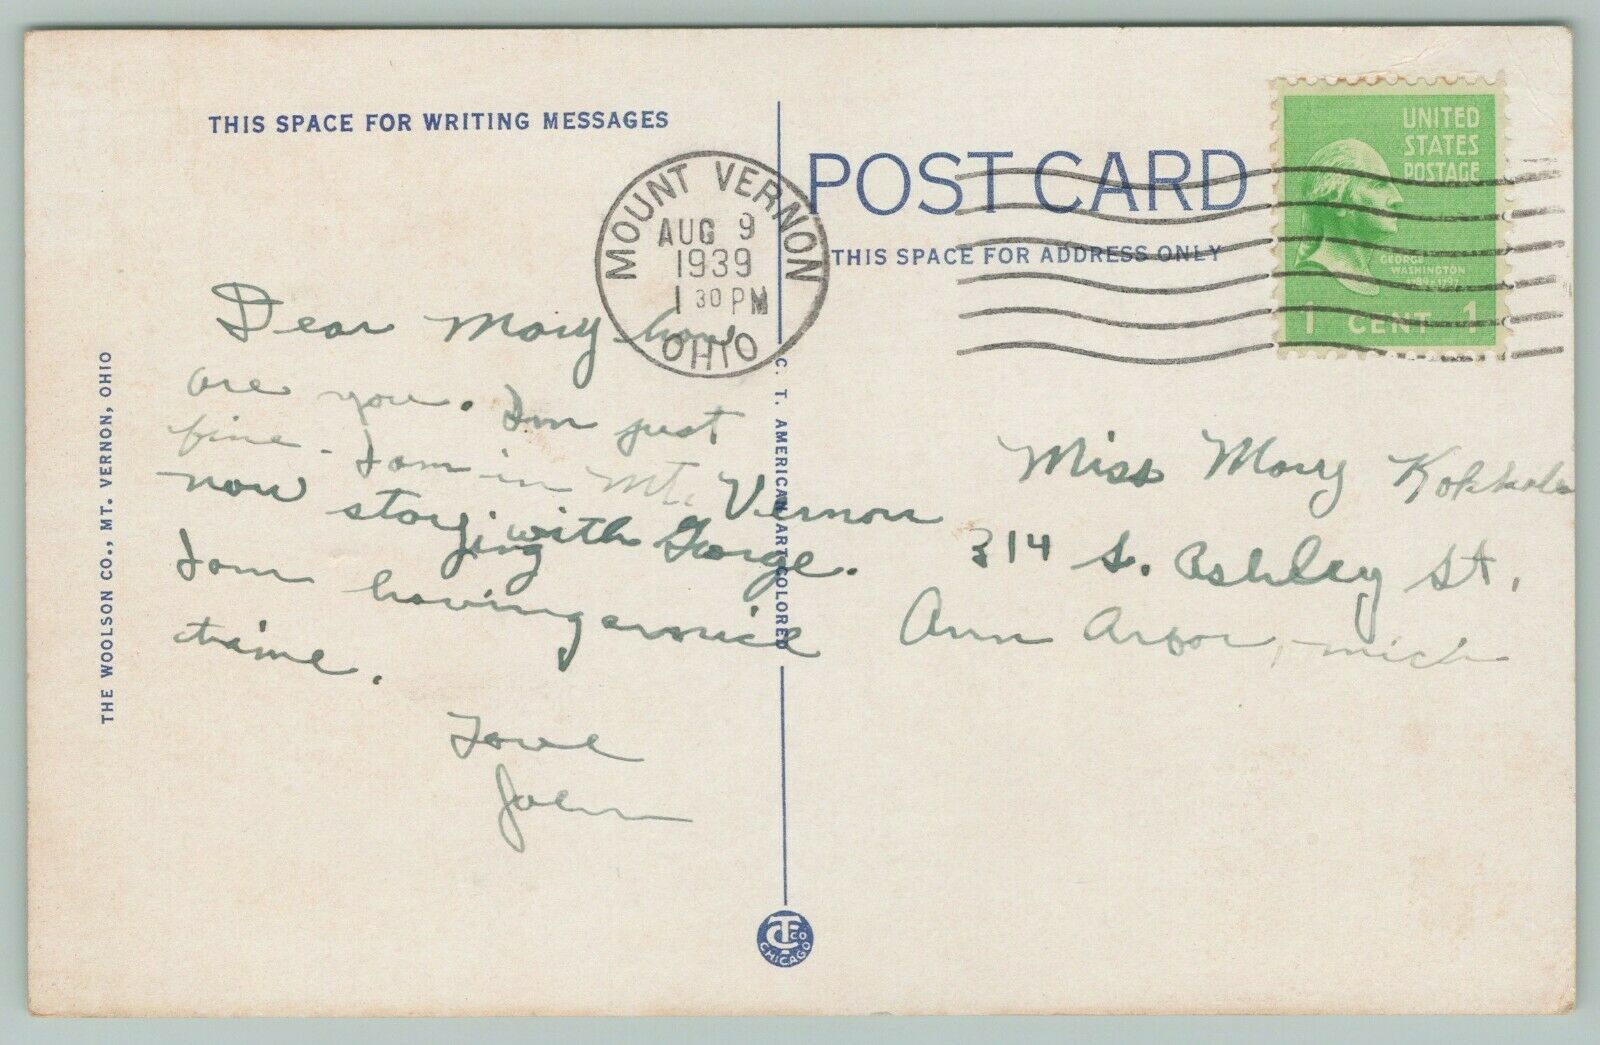 THIS SPACE FOR WRITING MESSAGES
POST CARD
THIS SPACE FOR ADDRESS ONLY
UNITED
STATES
POSTAGE
GEORGE
WASHINGTON
1 CENT 1
MOUNT VERNON
AUG 9
1939
1 30 PM
OHIO
Dear Mary how
are you. I'm just
fine. I am in Mt. Vernon
now staying with George.
I am having a nice
time.
Love
Miss Mary
314 S. Ashley St.
Ann Arbor, Mich
THE WOOLSON CO., MT. VERNON, OHIO
C. T. AMERICAN ART COLORED
CTCO
CHICAGO